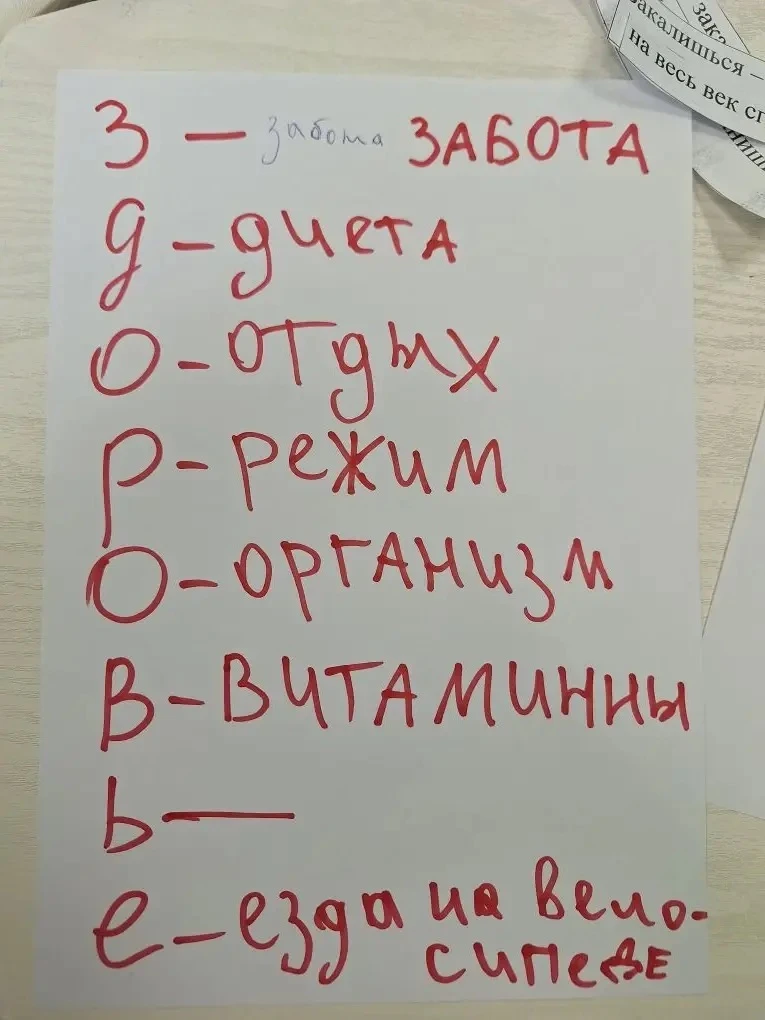 закалишься –
на весь век
З — забота ЗАБОТА
д - диета
О - отдых
р - режим
О - организм
В - витаминны
ь —
е - езда на вело-
сипеде